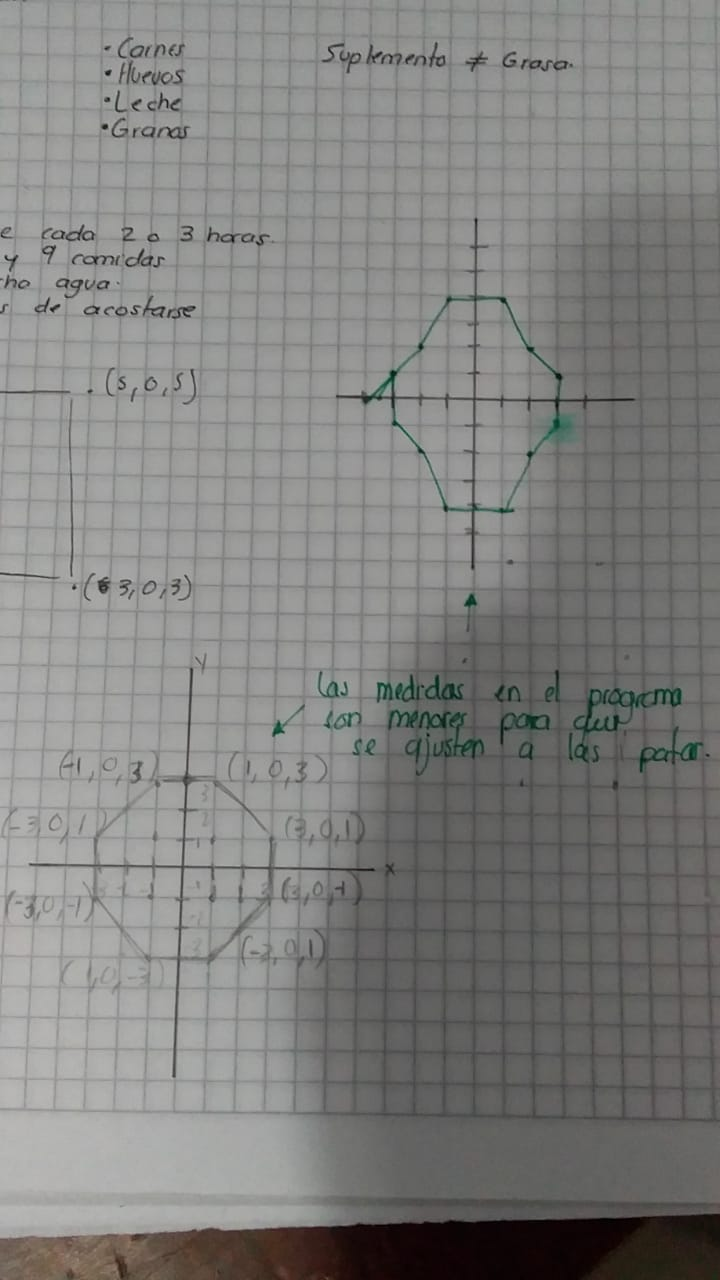 · Carnes
· Huevos
· Leche
· Granos
Suplemento ≠ Grasa.
e cada 2 o 3 horas.
y 9 comidas
cho agua.
s de acostarse
. (5,0,5)
. (3,0,3)
Y
las medidas en el programa
son menores para que
se ajusten a las patas.
(-1,0,3) (1,0,3)
(-3,0,1) (3,0,1)
x
(-3,0,-1) (3,0,-1)
(-3,0,1)
(1,0,-3)